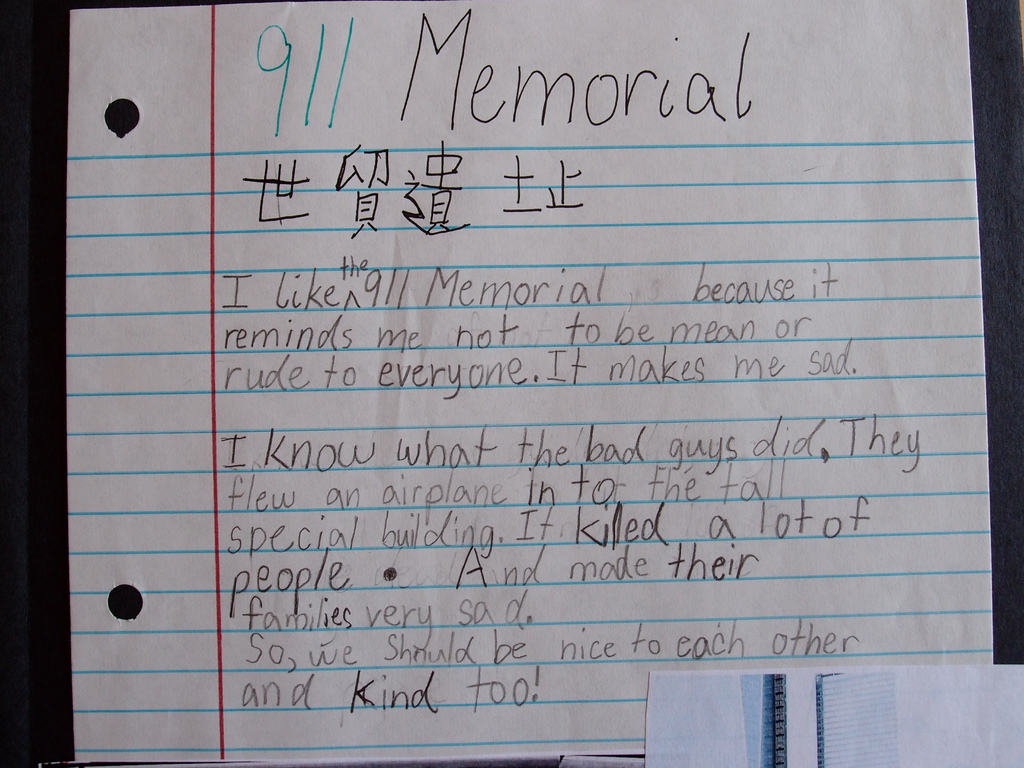 911 Memorial
世貿遺址
I like the 911 Memorial because it
reminds me not to be mean or
rude to everyone. It makes me sad.
I know what the bad guys did. They
flew an airplane in to the tall
special building. It killed a lot of
people . And made their
families very sad.
So, we should be nice to each other
and kind too!